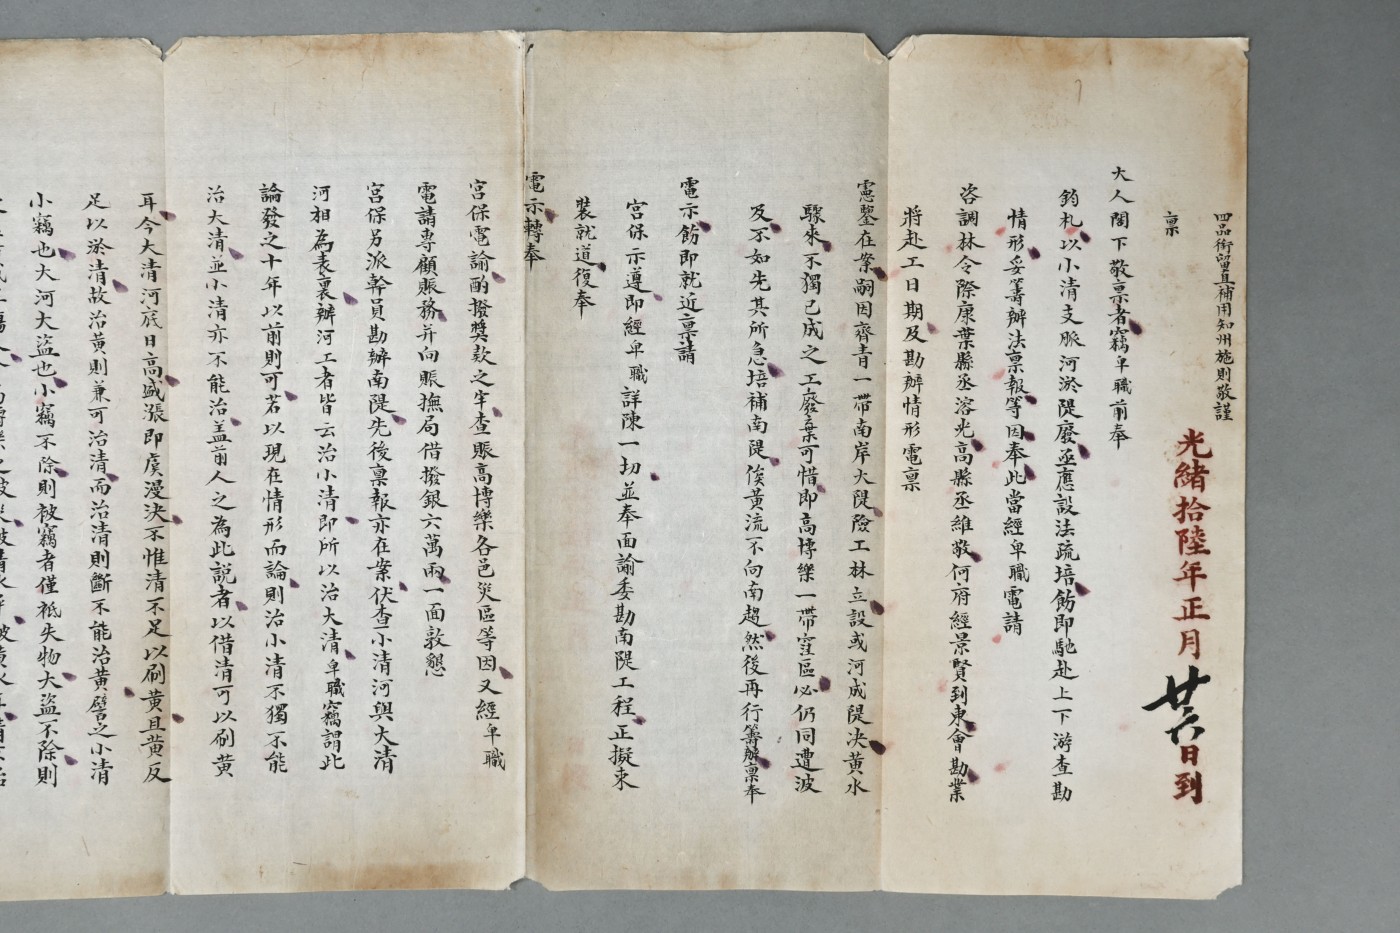 四品銜留直補用知州施則敬謹
稟
光緒拾陸年正月廿六日到
大人閣下敬稟者竊卑職前奉
鈞札以小清支脈河淤隄廢亟應設法疏培飭即馳赴上下游查勘
情形妥籌辦法稟報等因奉此當經卑職電請
咨調林令際康葉縣丞溶光高縣丞維敬何府經景賢到東會勘業
將赴工日期及勘辦情形電稟
憲鑒在案嗣因齊青一帶南岸大隄險工林立設或河成隄決黃水
驟來不獨已成之工廢棄可惜即高博樂一帶窪區必仍同遭波
及不如先其所急培補南隄俟黃流不向南趨然後再行籌辦稟奉
電示飭即就近稟請
宮保示遵即經卑職詳陳一切並奉面諭委勘南隄工程正擬束
裝就道復奉
電示轉奉
宮保電諭酌撥獎款之半查賑高博樂各邑災區等因又經卑職
電請專顧賑務并向賑撫局借撥銀六萬兩一面敦懇
宮保另派幹員勘辦南隄先後稟報亦在案伏查小清河與大清
河相為表裏辦河工者皆云治小清即所以治大清卑職竊謂此
論發之十年以前則可若以現在情形而論則治小清不獨不能
治大清並小清亦不能治蓋前人之為此說者以借清可以刷黃
耳今大清河底日高盛漲即虞漫決不惟清不足以刷黃且黃反
足以淤清故治黃則兼可治清而治清則斷不能治黃譬之小清
小竊也大河大盜也小竊不除則被竊者僅祗失物大盜不除則